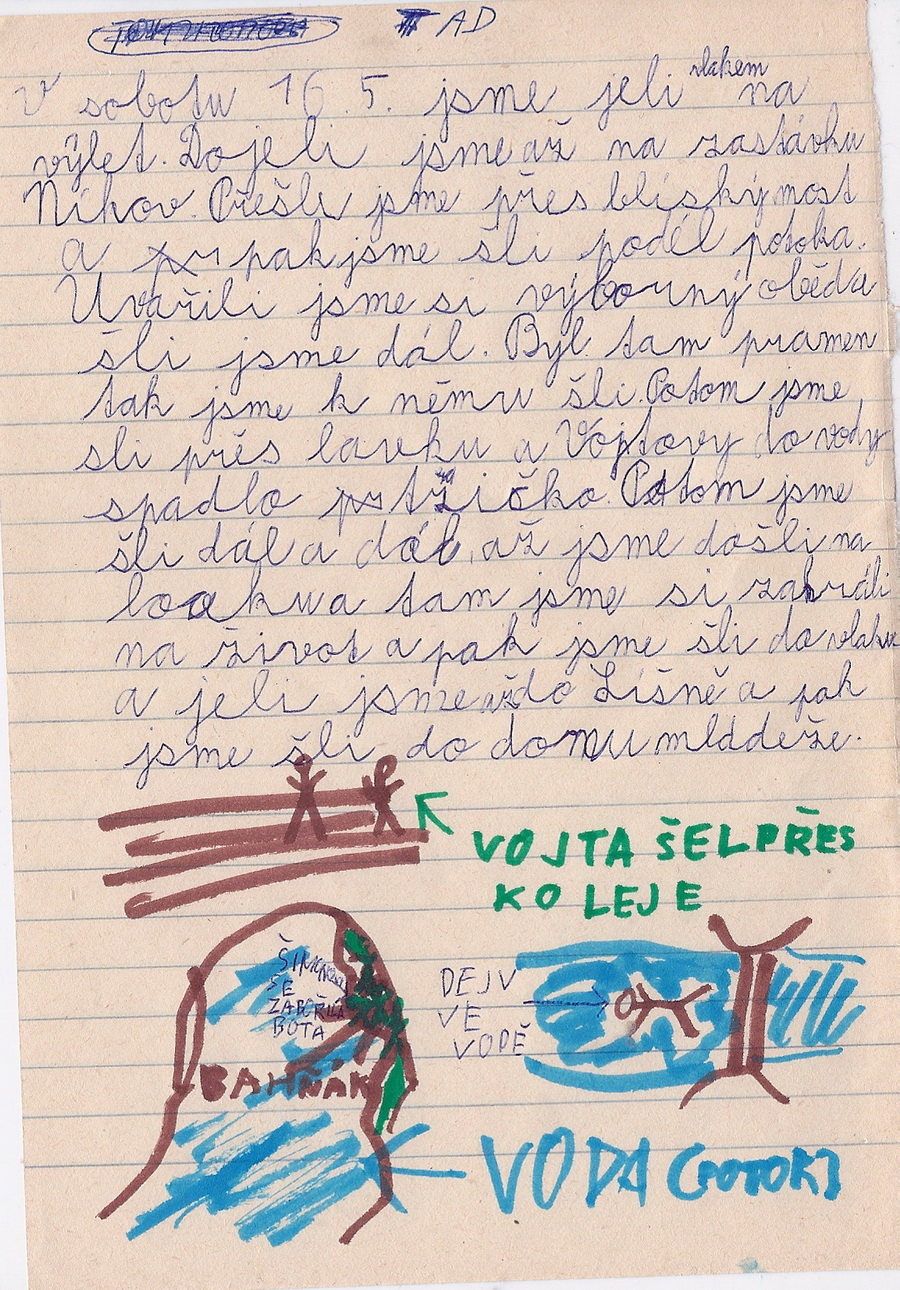 AD
V sobotu 16. 5. jsme jeli vlakem na
výlet. Dojeli jsme až na zastávku
Níhov. Přešli jsme přes blíským ost
a pak jsme šli podél potoka.
Uvařili jsme si výborný oběd a
šli jsme dál. Byl tam pramen
tak jsme k němu šli. Potom jsme
sli přes lavku a Vojtovy do vody
spadlo tričko. Potom jsme
šli dál a dál, až jsme došli na
louku a tam jsme si zahráli
na život a pak jsme šli do vlaku
a jeli jsme až do Líšně a pak
jsme šli do domu mláddeže.
VOJTA ŠEL PŘES
KOLEJE
SE
ZABOŘILA
BOTA
BAHŇÁK
DEJV
VE
VODĚ
VODA (POTOK)